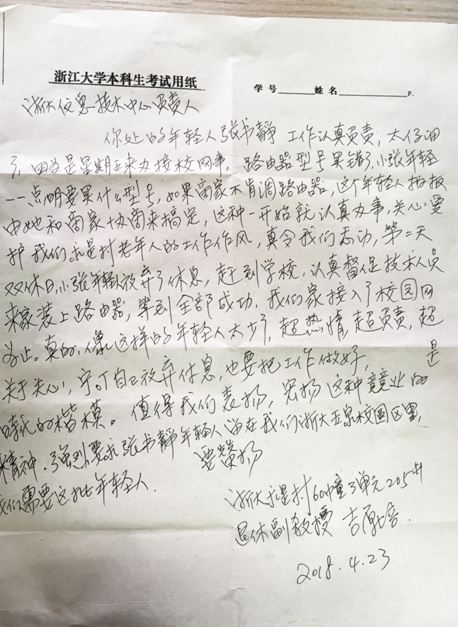 浙江大学本科生考试用纸 学号 姓名 P.
浙大信息技术中心负责人
你处的年轻人张书静工作认真负责,太仔细
了,因为是星期五来办接校网事,路由器型号买错了,小张年轻
一一点明要买什么型号,如果商家不肯调路由器,这个年轻人拍板
由她和商家协商来搞定,这种一开始就认真办事,关心、爱
护我们永是村老年人的工作作风,真令我们感动,第二天
双休日,小张年轻放弃了休息,赶到学校,认真督促技术人员
来家装上路由器,等到全部成功,我们家接入了校园网
为止。真的,像这样的年轻人太少了,超热情,超负责,超
关于关心,宁可自己放弃休息,也要把工作做好,是
我的楷模。值得我们表扬,宏扬这种敬业的
精神。强烈要求张书静年轻人留在我们浙大玉泉校园区里,
要赞扬
我们需要这批年轻人.
浙大永是村60幢3单元205室
退休副教授 吉
2018.4.23